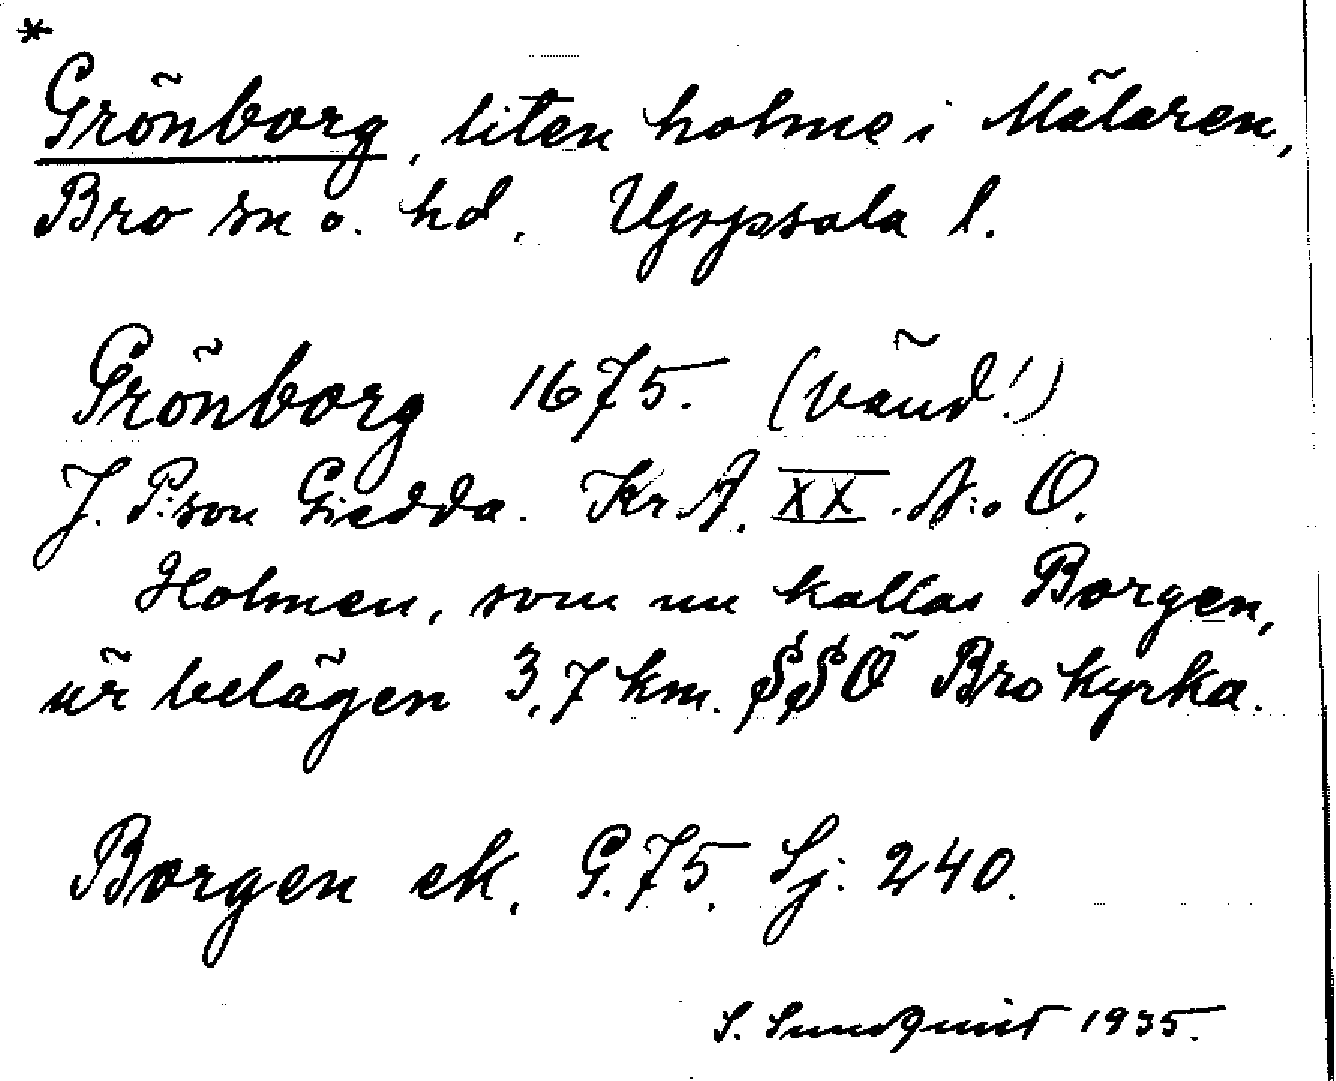 *
Grönborg, liten holme i Mälaren,
Bro sn o. hd. Uppsala l.
Grönborg 1675. (vänd!)
J. P:son Giedda. Kr A. XX. N:o O.
Holmen, som nu kallas Borgen,
är belägen 3,7 km. SSÖ Bro kyrka.
Borgen ek. G. 75. Sj: 240.
S. Sundquist 1935.